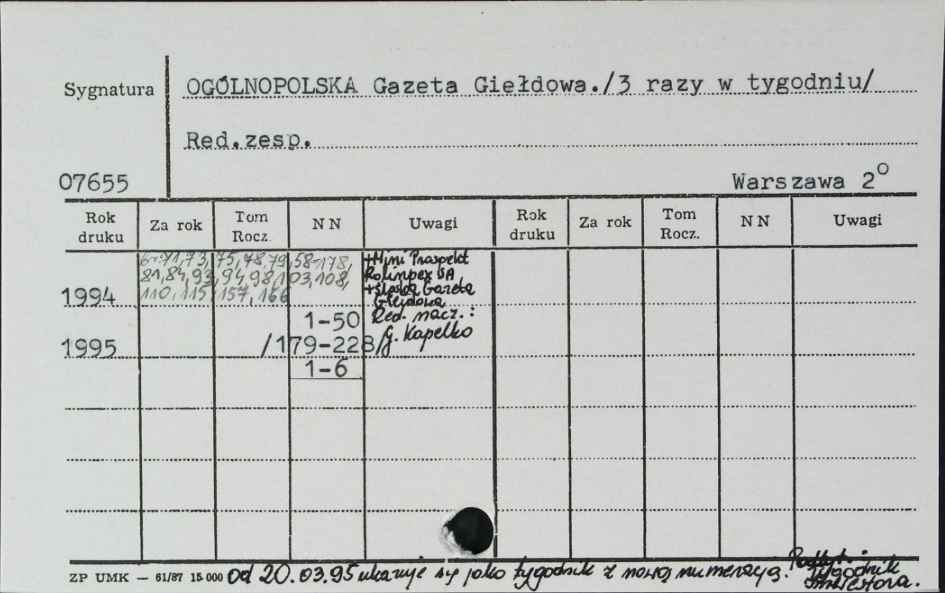 Sygnatura OGÓLNOPOLSKA Gazeta Giełdowa./3 razy w tygodniu/
Red.zesp.
07655 Warszawa 2°
Rok druku Za rok Tom Rocz. NN Uwagi Rok druku Za rok Tom Rocz. NN Uwagi
71,73,75,78,79, 58-178, +Mini Prospekt
81,84,93,94,98,103,108, Rolimpex SA
1994 110,115,157,166 +Śląska Gazeta
Giełdowa
1-50 Red. nacz.:
1995 /179-228/ G. Kapelko
1-6
ZP UMK — 61/87 15 000 od 20.03.95 ukazuje się jako tygodnik z nową numeracją. Podtyt.:
Tygodnik
Inwestora.